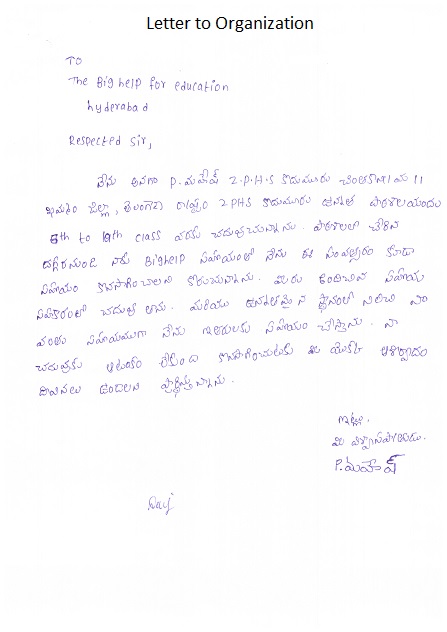 Letter to Organization
To
The Big help for education
hyderabad
Respected Sir,
నేను అనగా P.మహేష్ Z.P.H.S కొదుమూరు చింతకాని(మ)
ఖమ్మం జిల్లా, తెలంగాణ రాష్ట్రం ZPHS కొదుమూరు ఉన్నత పాఠశాలయందు
6th to 10th class వరకు చదువుచున్నాను. పాఠశాలలో చేరిన
దగ్గరనుండి నాకు Bighelp సహాయంతో నేను ఈ సంవత్సరం కూడా
సహాయం కొనసాగించాలని కోరుచున్నాను. మీరు అందించిన సహాయ
సహకారంతో చదువు తాను. మరియు ఉన్నతమైన స్థానంలో నిలిచి నా
వంతు సహాయముగా నేను ఇతరులకు సహాయం చేస్తాను. నా
చదువుకు ఆటంకం లేకుండ కొనసాగించుటకు మీ యొక్క ఆశీర్వాదం
దీవెనలు ఉండాలని ప్రార్థిస్తున్నాను.
ఇట్లు.
మీ విశ్వాసపాత్రుడు.
P.మహేష్